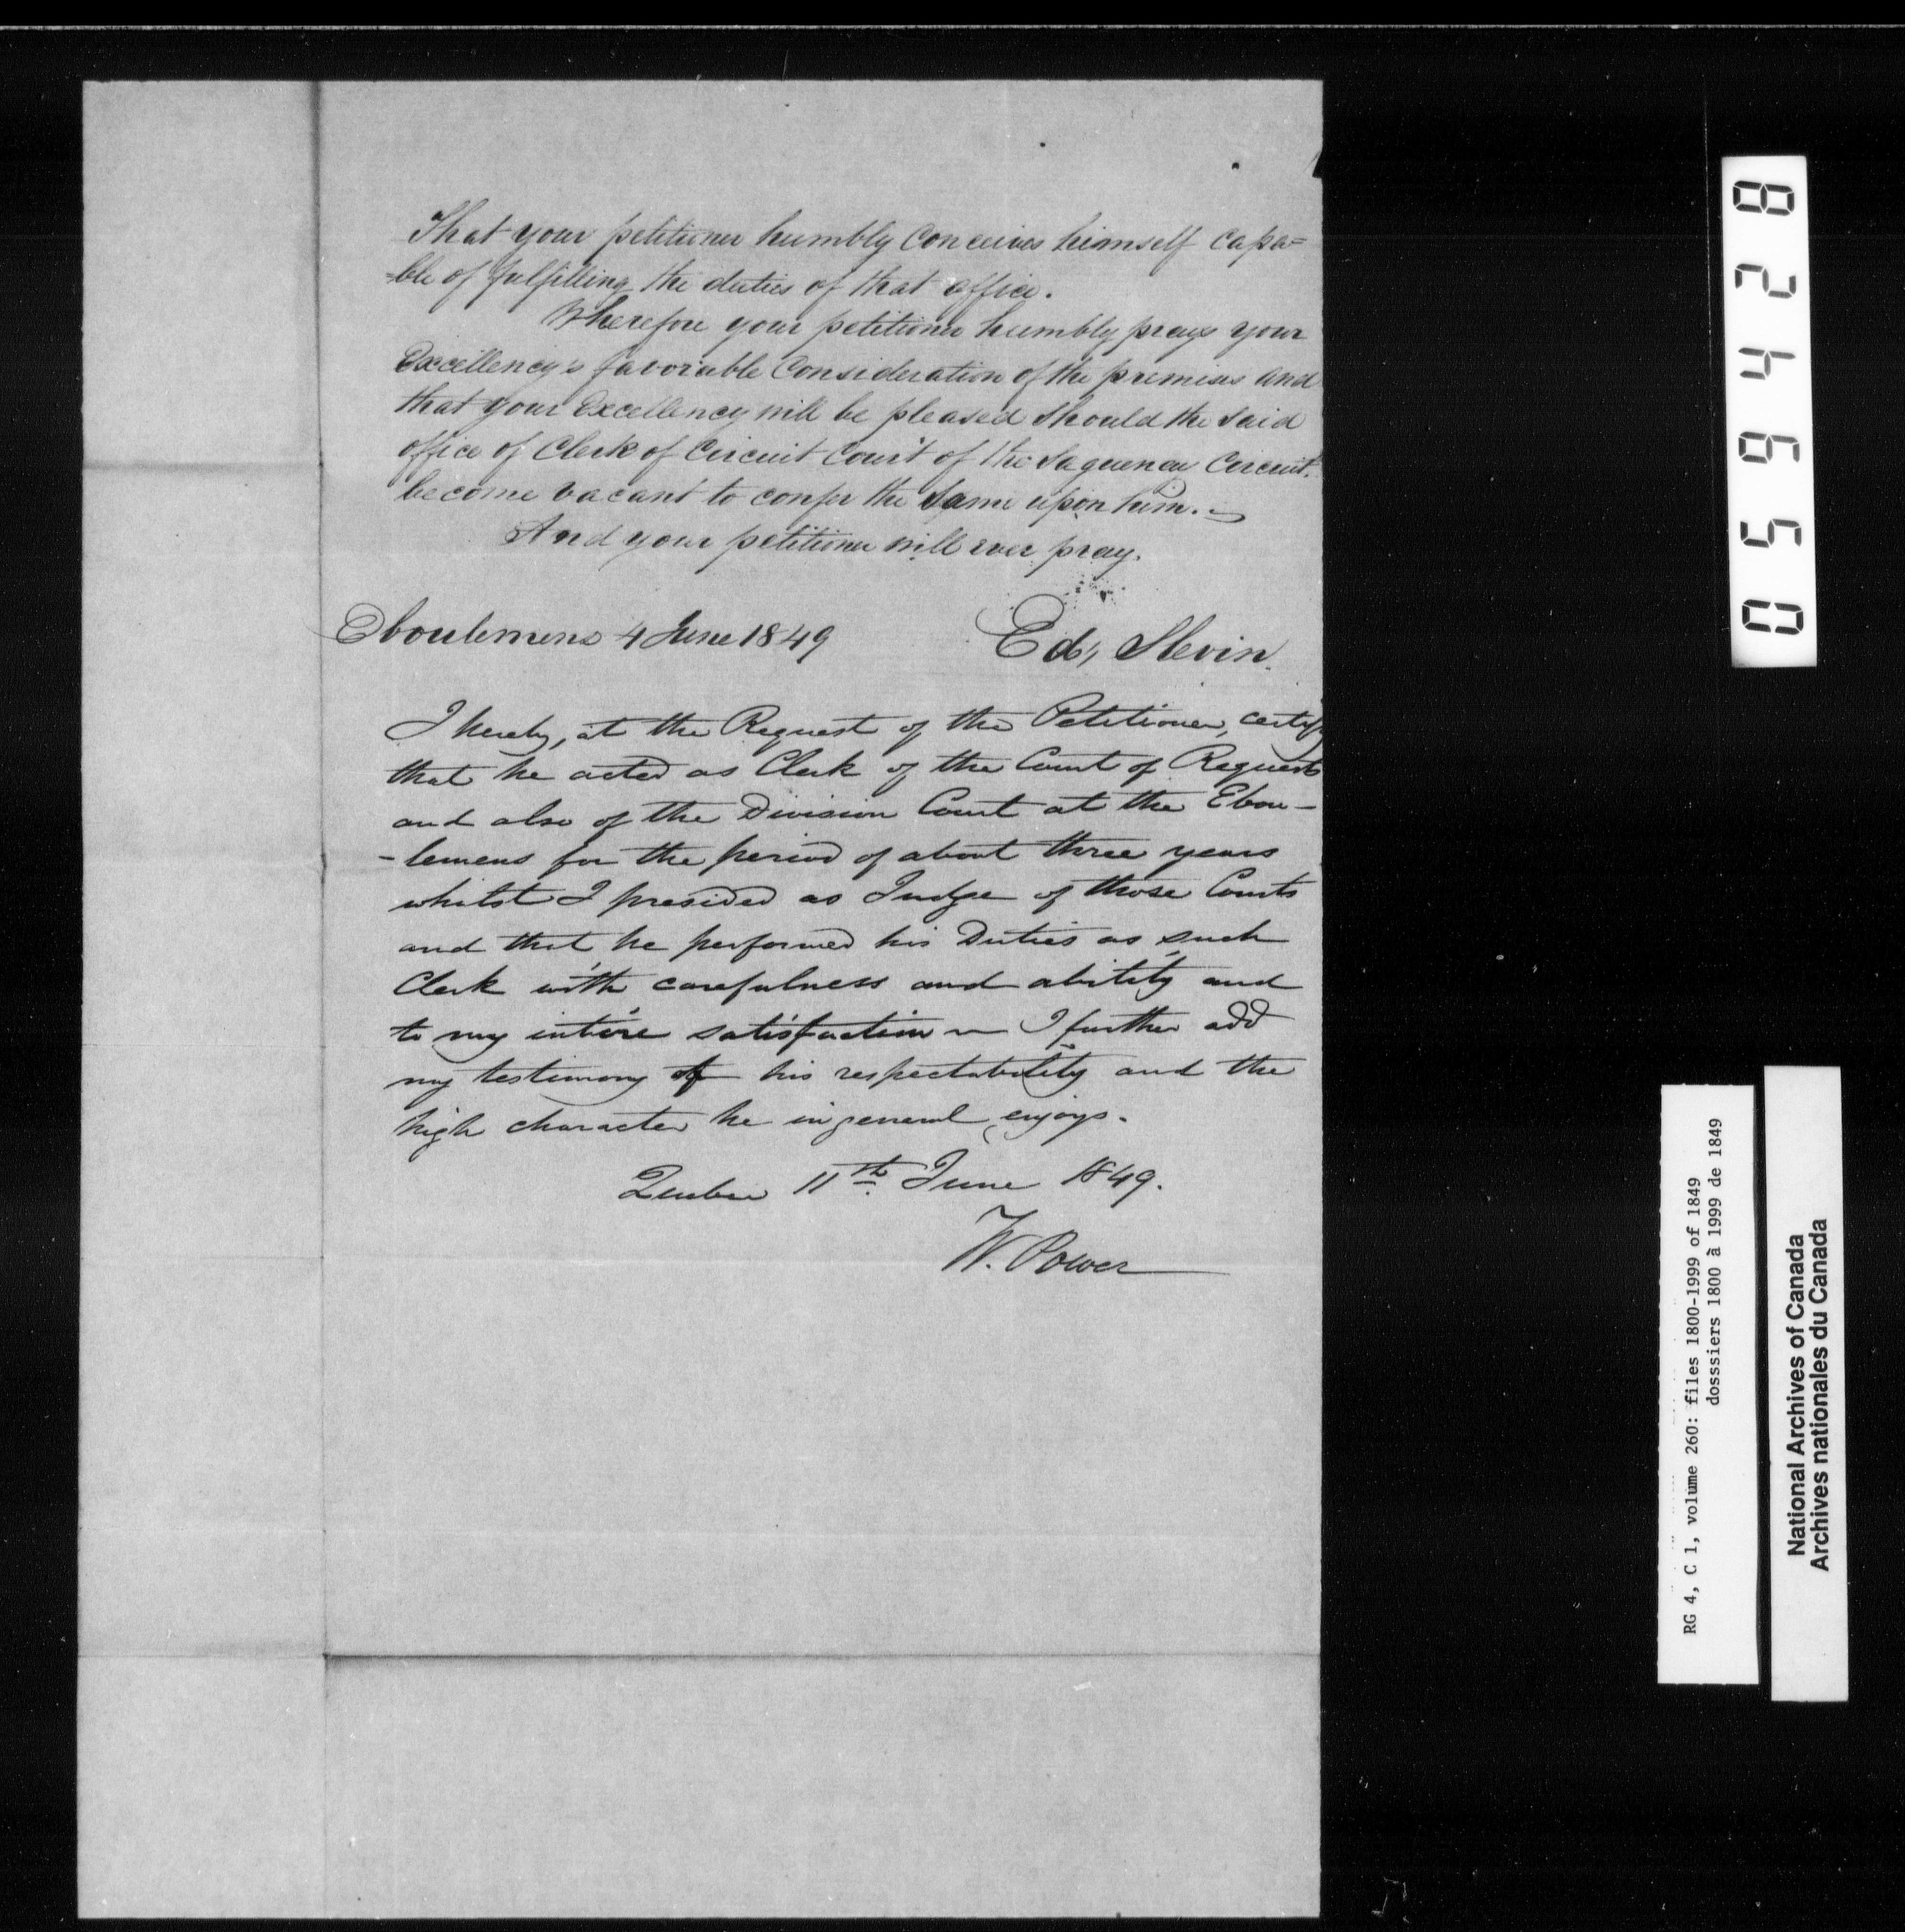 That your petitioner humbly Conceives himself capa=
=ble of fulfilling the duties of that office.
Wherefore your petitioner humbly prays your
Excellency's favorable Consideration of the premises and
that your Excellency will be pleased should the said
office of Clerk of Circuit Court of the Saguenay Circuit.
become vacant to confer the same upon him.
And your petitioner will ever pray.
Eboulemens 4 June 1849
Ed, Slevin.
I hereby, at the Request of the Petitioner, certify
that he acted as Clerk of the Court of Requests
and also of the Division Court at the Ebou-
-lemens for the period of about three years
whilst I presided as Judge of those Courts
and that he performed his Duties as such
Clerk with carefulness and ability and
to my intire satisfaction — I further add
my testimony of his respectability and the
high character he in general enjoys.
Quebec 11th June 1849.
W. Power
059428
RG 4, C 1, volume 260: files 1800-1999 of 1849
dosssiers 1800 à 1999 de 1849
National Archives of Canada
Archives nationales du Canada